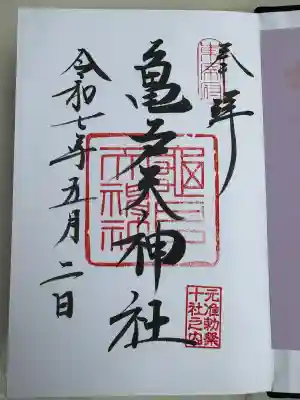 奉拝
東宰府
亀戸天神社
龜戸天神社
元准勅祭
十社之内
令和七年五月二日